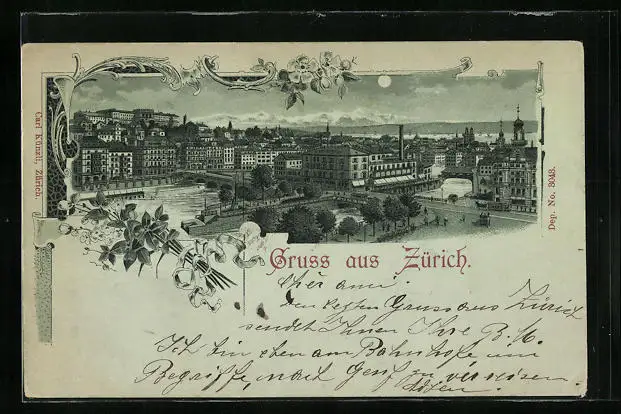 Carl Künzli, Zürich.
Dep. No. 3043.
Gruss aus Zürich.
Cher ami!
Den besten Gruss aus Zürich
sendet Ihnen Ihre B. M.
Ich bin eben am Bahnhofe im
Begriffe, nach Genf zu verreisen.